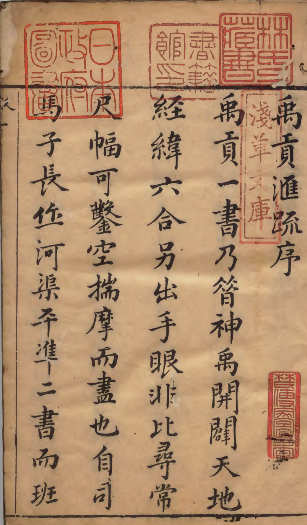 禹貢滙疏序
禹貢一書乃昔神禹開闢天地
經緯六合另出手眼非比尋常
尺幅可鑿空揣摩而盡也自司
馬子長作河渠平準二書而班
林氏藏書
淺草文庫
書籍館印
日本政府圖書